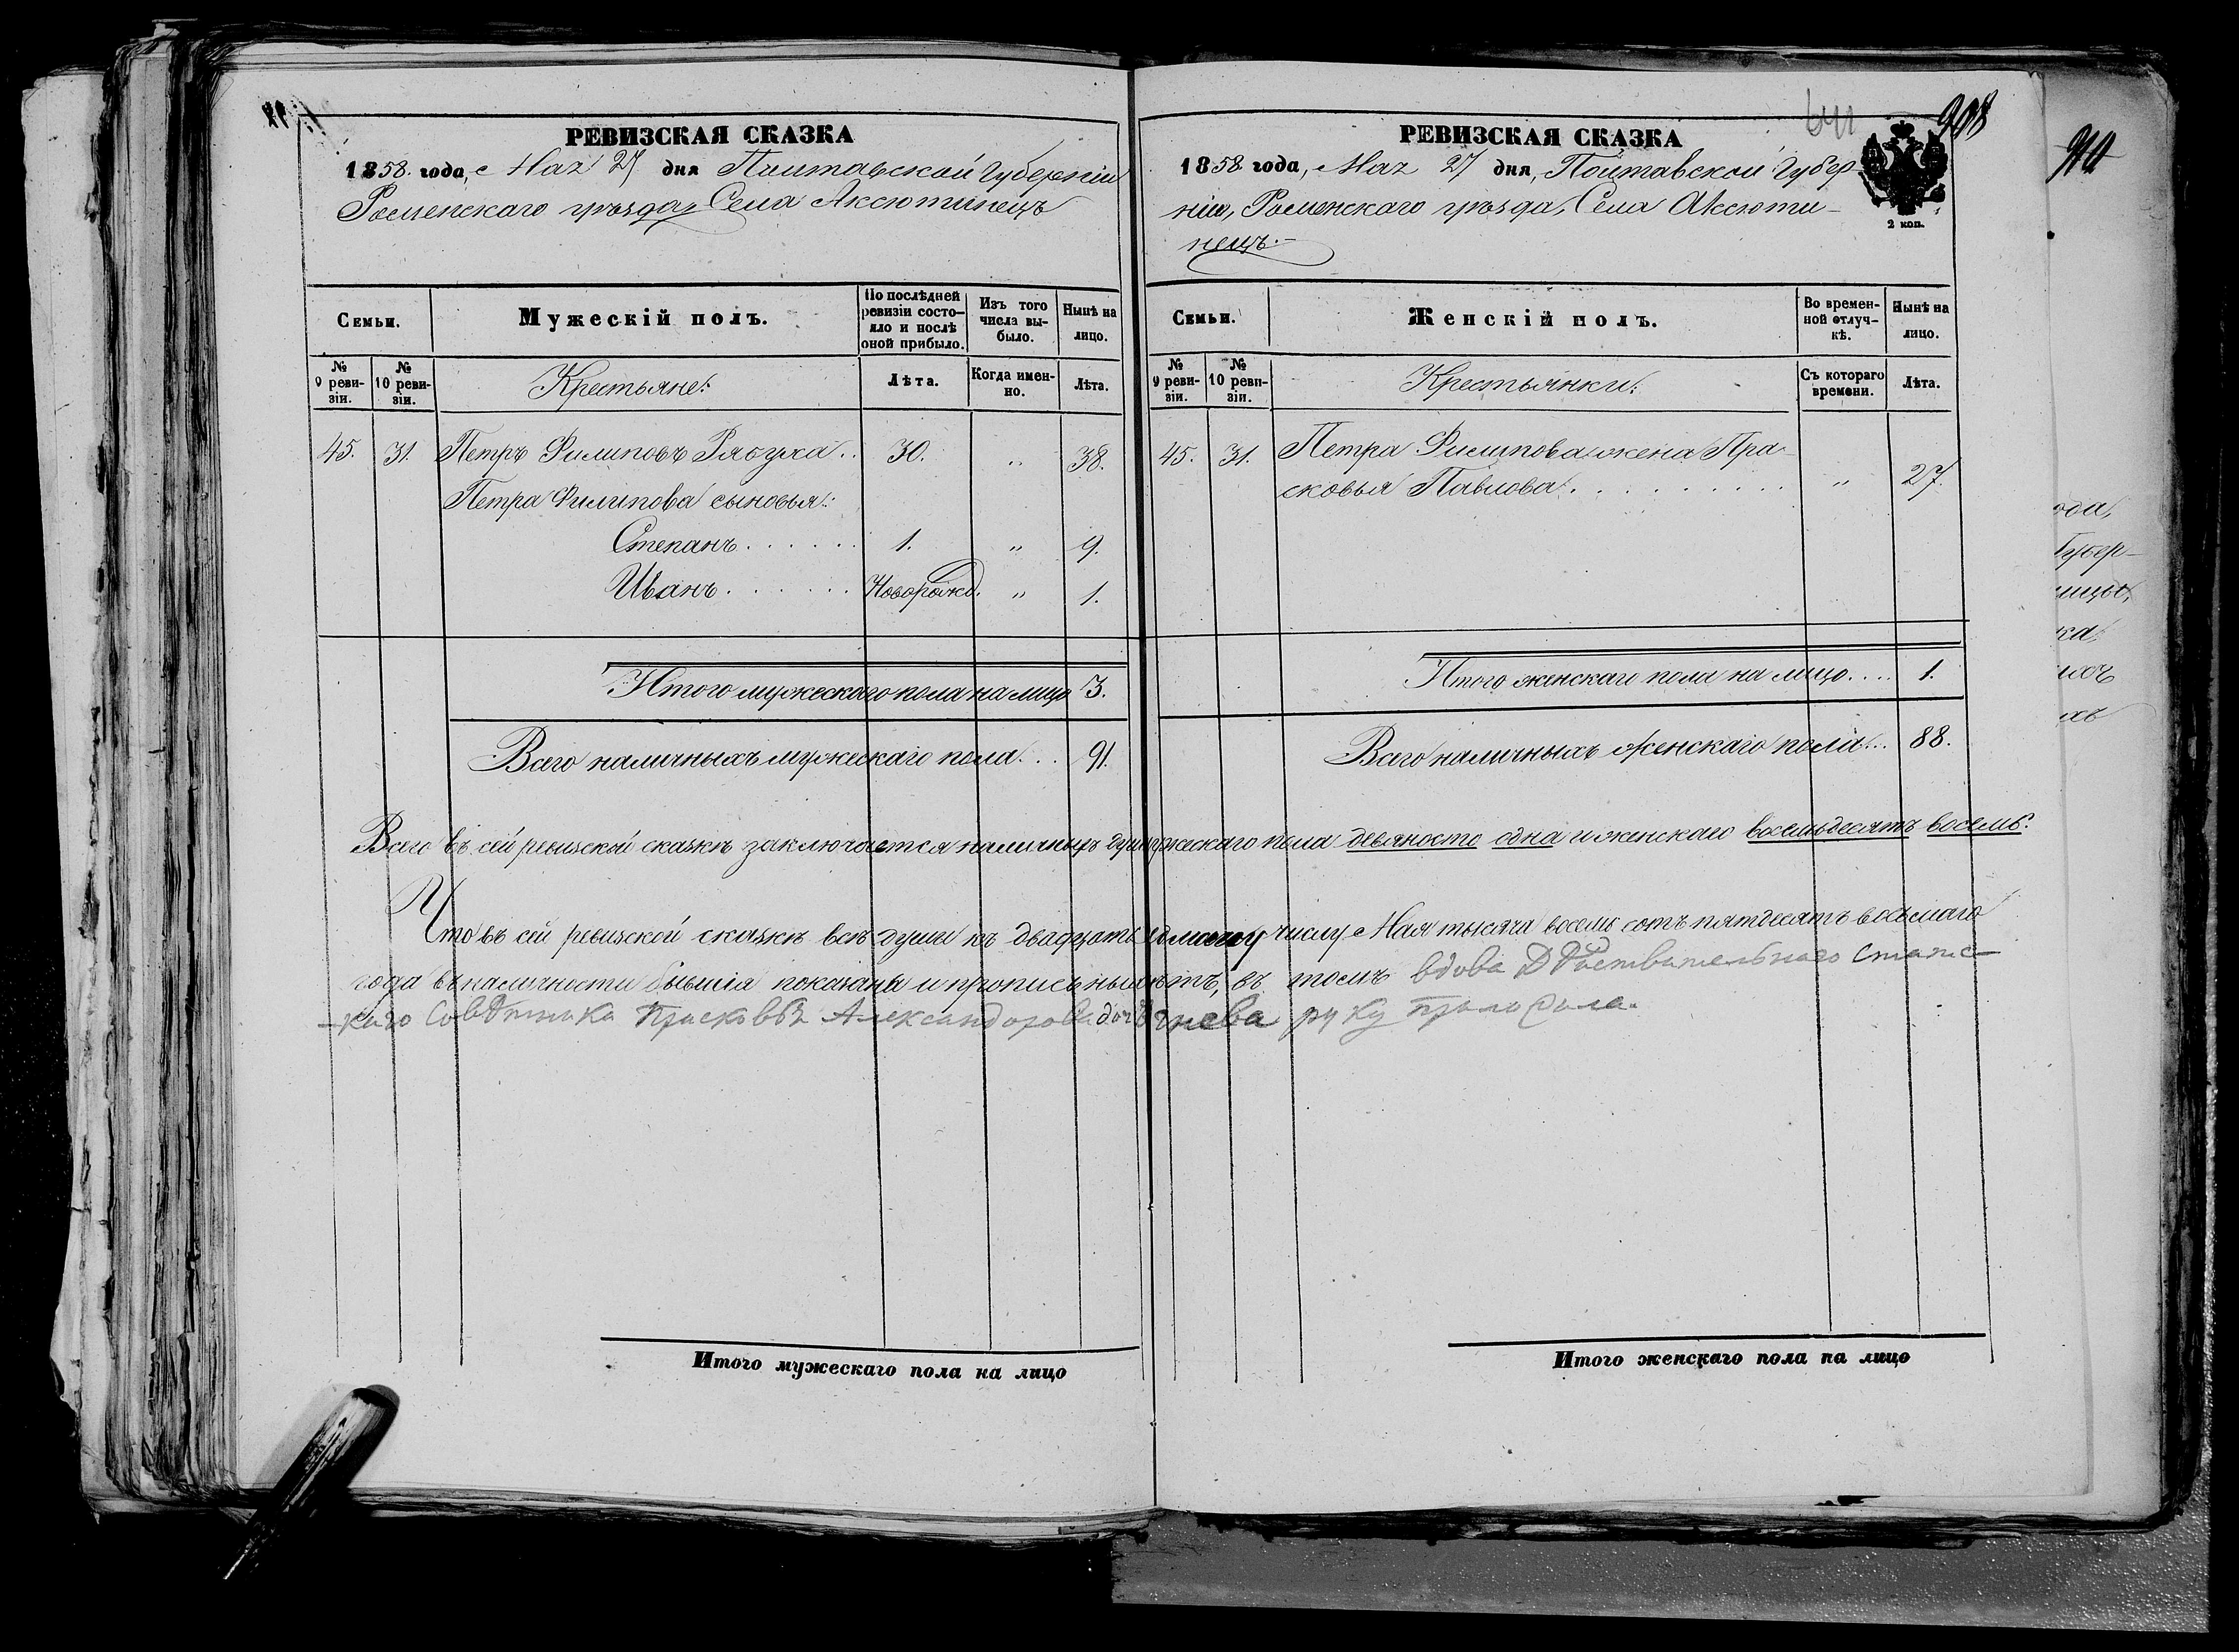 РЕВИЗСКАЯ СКАЗКА
1858. года, Мая 27 дня Полтавской Губерніи
Роменскаго уѣзда, Села Аксютинецъ
Семьи.
Мужескій полъ.
По послѣдней ревизіи состояло и послѣ оной прибыло.
Изъ того числа выбыло.
Нынѣ на лицо.
№ 9 ревизіи.
№ 10 ревизіи.
Крестьяне:
Лѣта.
Когда именно.
Лѣта.
45. 31. Петръ Филиповъ Рябуха.. 30. „ 38.
Петра Филипова сыновья:
Степанъ...... 1. „ 9.
Иванъ...... Новорожд. „ 1.
Итого мужескаго пола на лицо 3.
Всего наличныхъ мужескаго пола... 91.
РЕВИЗСКАЯ СКАЗКА
908
1858 года, Мая 27 дня, Полтавской Губер-
ніи, Роменскаго уѣзда, Села Аксюти-
нецъ.
2 коп.
Семьи.
Женскій полъ.
Во временной отлучкѣ.
Нынѣ на лицо.
№ 9 ревизіи.
№ 10 ревизіи.
Крестьянки:
Съ котораго времени.
Лѣта.
45. 31. Петра Филипова жена Пра-
сковья Павлова......... „ 27.
Итого женскаго пола на лицо.... 1.
Всего наличныхъ женскаго пола... 88.
Всего въ сей ревизской сказкѣ заключается наличныхъ душъ мужескаго пола девяносто одна и женскаго восемьдесятъ восемь.
Что въ сей ревизской сказкѣ всѣ души къ двадцать седьмому числу Мая тысяча восемь сотъ пятдесятъ восьмаго
года въ наличности бывшія показаны и прописныхъ нѣтъ, въ томъ вдова Дѣйствительнаго Статс-
каго Совѣтника Присковья Александрова дочь руку приложила.
Итого мужескаго пола на лицо
Итого женскаго пола на лицо
910
ода,
Губер-